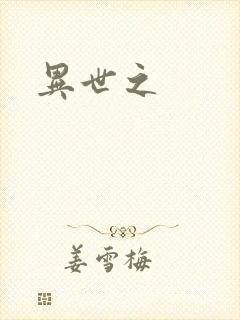 異世之
姜雪梅